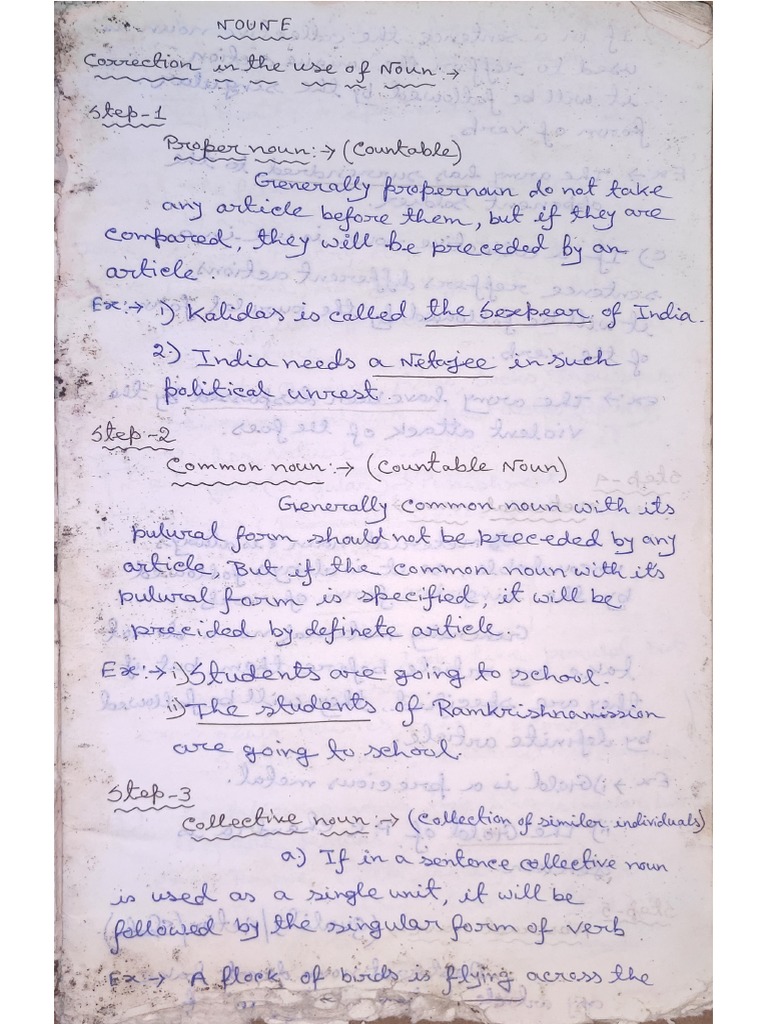 NOUNE
Correction in the use of Noun :→
Step-1
Proper noun :→ (Countable)
Generally propernoun do not take
any article before them, but if they are
compared, they will be preceded by an
article.
Ex :→ i) Kalidas is called the Sexpear of India.
2) India needs a Netajee in such
political unrest.
Step-2
Common noun :→ (Countable Noun)
Generally common noun with its
pulural form should not be preceded by any
article, But if the common noun with its
pulural form is specified, it will be
precided by definete article.
Ex :→ i) Students are going to school.
ii) The students of Ramkrishnamission
are going to school.
Step-3
Collective noun :→ (Collection of similer individuals)
a.) If in a sentence collective noun
is used as a single unit, it will be
followed by the singular form of verb
Ex :→ A flock of birds is flying across the